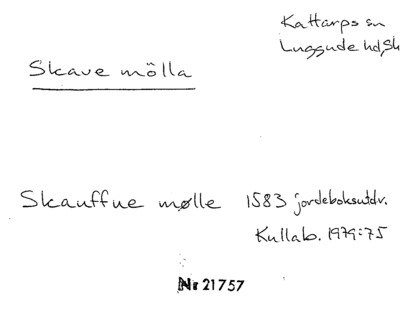 Kattarps sn
Luggude hd, Sk
Skave mölla
Skauffue mølle 1583 jordeboksutdr.
Kullab. 1979:75
Nr 21757